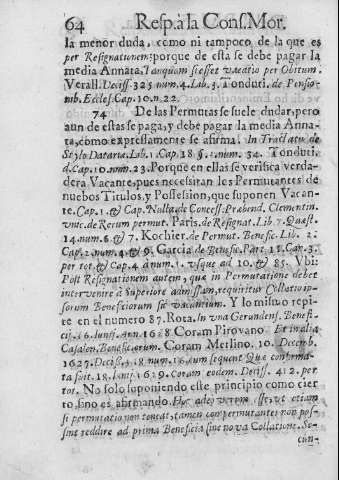 64 Resp. à la Cons. Mor.
la menor duda, como ni tampoco de la que es
per Resignationem: porque de esta se debe pagar la
media Annata, Tanquam si esset vacatio per Obitum.
Verall. Deciss. 325 num. 4. Lib. 3. Tonduti. de Pensio-
nib. Eccles. Cap. 10. n. 22.
74 De las Permutas se suele dudar, pero
aun de estas se paga, y debe pagar la media Anna-
ta, como expressamente se afirma. In Tractatu de
Stylo Datariæ. Lib. 1. Cap. 18 §. 1. num. 34. Tonduti.
d. Cap. 10. num. 23. Porque en ellas se verifica verda-
dera Vacante, pues necessitan los Permutantes de
nuebos Titulos, y Possession, que suponen Vacan-
te. Cap. 1. & Cap. Nulla de Concess. Præbend. Clementin.
vnic. de Rerum permut. Paris. de Resignat. Lib. 7. Quæst.
14. num. 6. & 7. Kochier. de Permut. Benefic. Lib. 2.
Cap. 2. num. 4. & 9. Garcia de Benefic. Part. 11. Cap. 3.
per tot. & Cap. 4. à num. 1. vsque ad 10. & 85. Vbi:
Post Resignationem autem, quæ in Permutatione debet
intervenire à Superiore admissam, requiritur Collatio ip-
sorum Beneficiorum sic vacantium. Y lo mismo repi-
te en el numero 87. Rota. In vna Gerundens. Benefi-
cij. 16. Iunij. Ann. 1628 Coram Pirovano. Et in alia
Casalen. Beneficiorum. Coram Merlino. 10. Decemb.
1627. Deciss. 418. num. 16. cum sequent. Quæ confirma-
ta fuit. 18. Iunij. 1629. Coram eodem. Deciss. 412. per
tot. No solo suponiendo este principio como cier
to, sino es afirmando. Hoc adeò verum esse, vt etiam
si permutatio non teneat, tamen compermutantes non pos-
sint reddire ad prima Beneficia sine nova Collatione. Se-
cun-